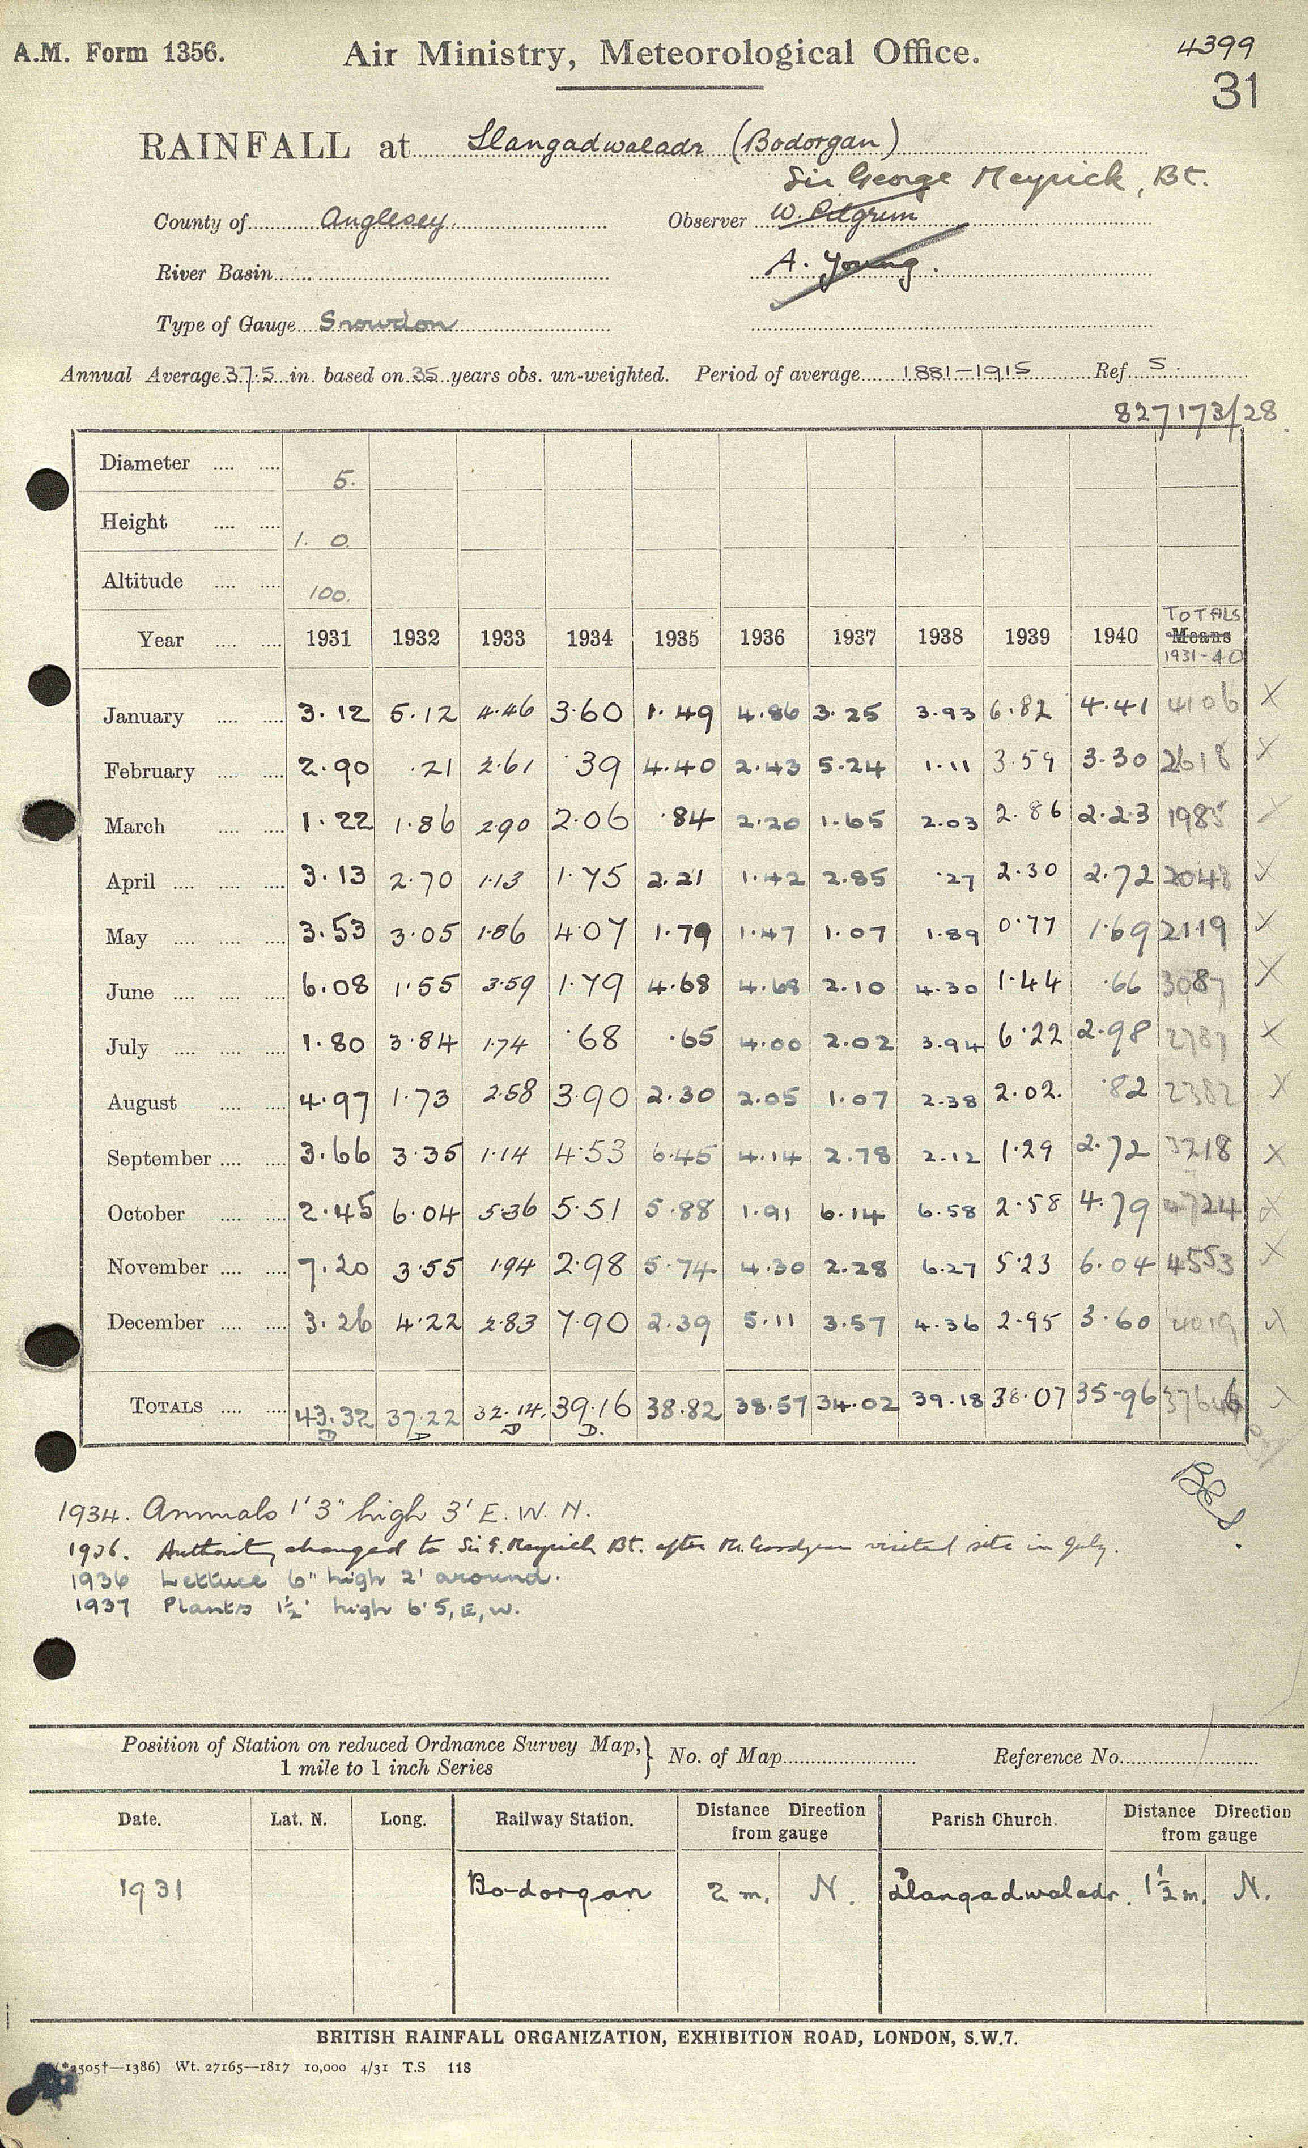 A.M. Form 1356.
Air Ministry, Meteorological Office.
4399
31
RAINFALL at Llangadwaladr (Bodorgan)
Sir George Meyrick, Bt.
County of Anglesey.
Observer W. Pilgrim
River Basin
A. Young.
Type of Gauge Snowdon
Annual Average 37.5 in. based on 35 years obs. un-weighted. Period of average 1881-1915 Ref. S.
827173/28
Diameter 5.
Height 1. 0.
Altitude 100.
TOTALS
Year 1931 1932 1933 1934 1935 1936 1937 1938 1939 1940 Means
1931-40
January 3.12 5.12 4.46 3.60 1.49 4.86 3.25 3.93 6.82 4.41 4106 X
February 2.90 .21 2.61 .39 4.40 2.43 5.24 1.11 3.59 3.30 2618 X
March 1.22 1.86 2.90 2.06 .84 2.20 1.65 2.03 2.86 2.23 1985
April 3.13 2.70 1.13 1.75 2.21 1.42 2.85 .27 2.30 2.72 2048 X
May 3.53 3.05 1.86 4.07 1.79 1.47 1.07 1.89 0.77 1.69 2119 X
June 6.08 1.55 3.59 1.79 4.68 4.68 2.10 4.30 1.44 .66 3087 X
July 1.80 3.84 1.74 .68 .65 4.00 2.02 3.94 6.22 2.98 2787 X
August 4.97 1.73 2.58 3.90 2.30 2.05 1.07 2.38 2.02. .82 2382 X
September 3.66 3.35 1.14 4.53 6.45 4.14 2.78 2.12 1.29 2.72 3218 X
October 2.45 6.04 5.36 5.51 5.88 1.91 6.14 6.58 2.58 4.79 4724
November 7.20 3.55 1.94 2.98 5.74 4.30 2.28 6.27 5.23 6.04 4553 X
December 3.26 4.22 2.83 7.90 2.39 5.11 3.57 4.36 2.95 3.60 4019
TOTALS 43.32 37.22 32.14. 39.16 38.82 38.57 34.02 39.18 38.07 35.96 37646 X
D D D D.
1934. Annuals 1' 3" high 3' E. W. N.
1936. Authority changed to Sir G. Meyrick Bt. after visited site in July.
1936 Lettuce 6" high 2' around.
1937 Plants 1½' high 6' S, E, W.
Position of Station on reduced Ordnance Survey Map, } No. of Map Reference No.
1 mile to 1 inch Series
Date. Lat. N. Long. Railway Station. Distance Direction from gauge Parish Church. Distance Direction from gauge
1931 Bodorgan 2 m. N. Llangadwaladr. 1½ m. N.
BRITISH RAINFALL ORGANIZATION, EXHIBITION ROAD, LONDON, S.W.7.
5505†—1386) Wt. 27165—1817 10,000 4/31 T.S 118